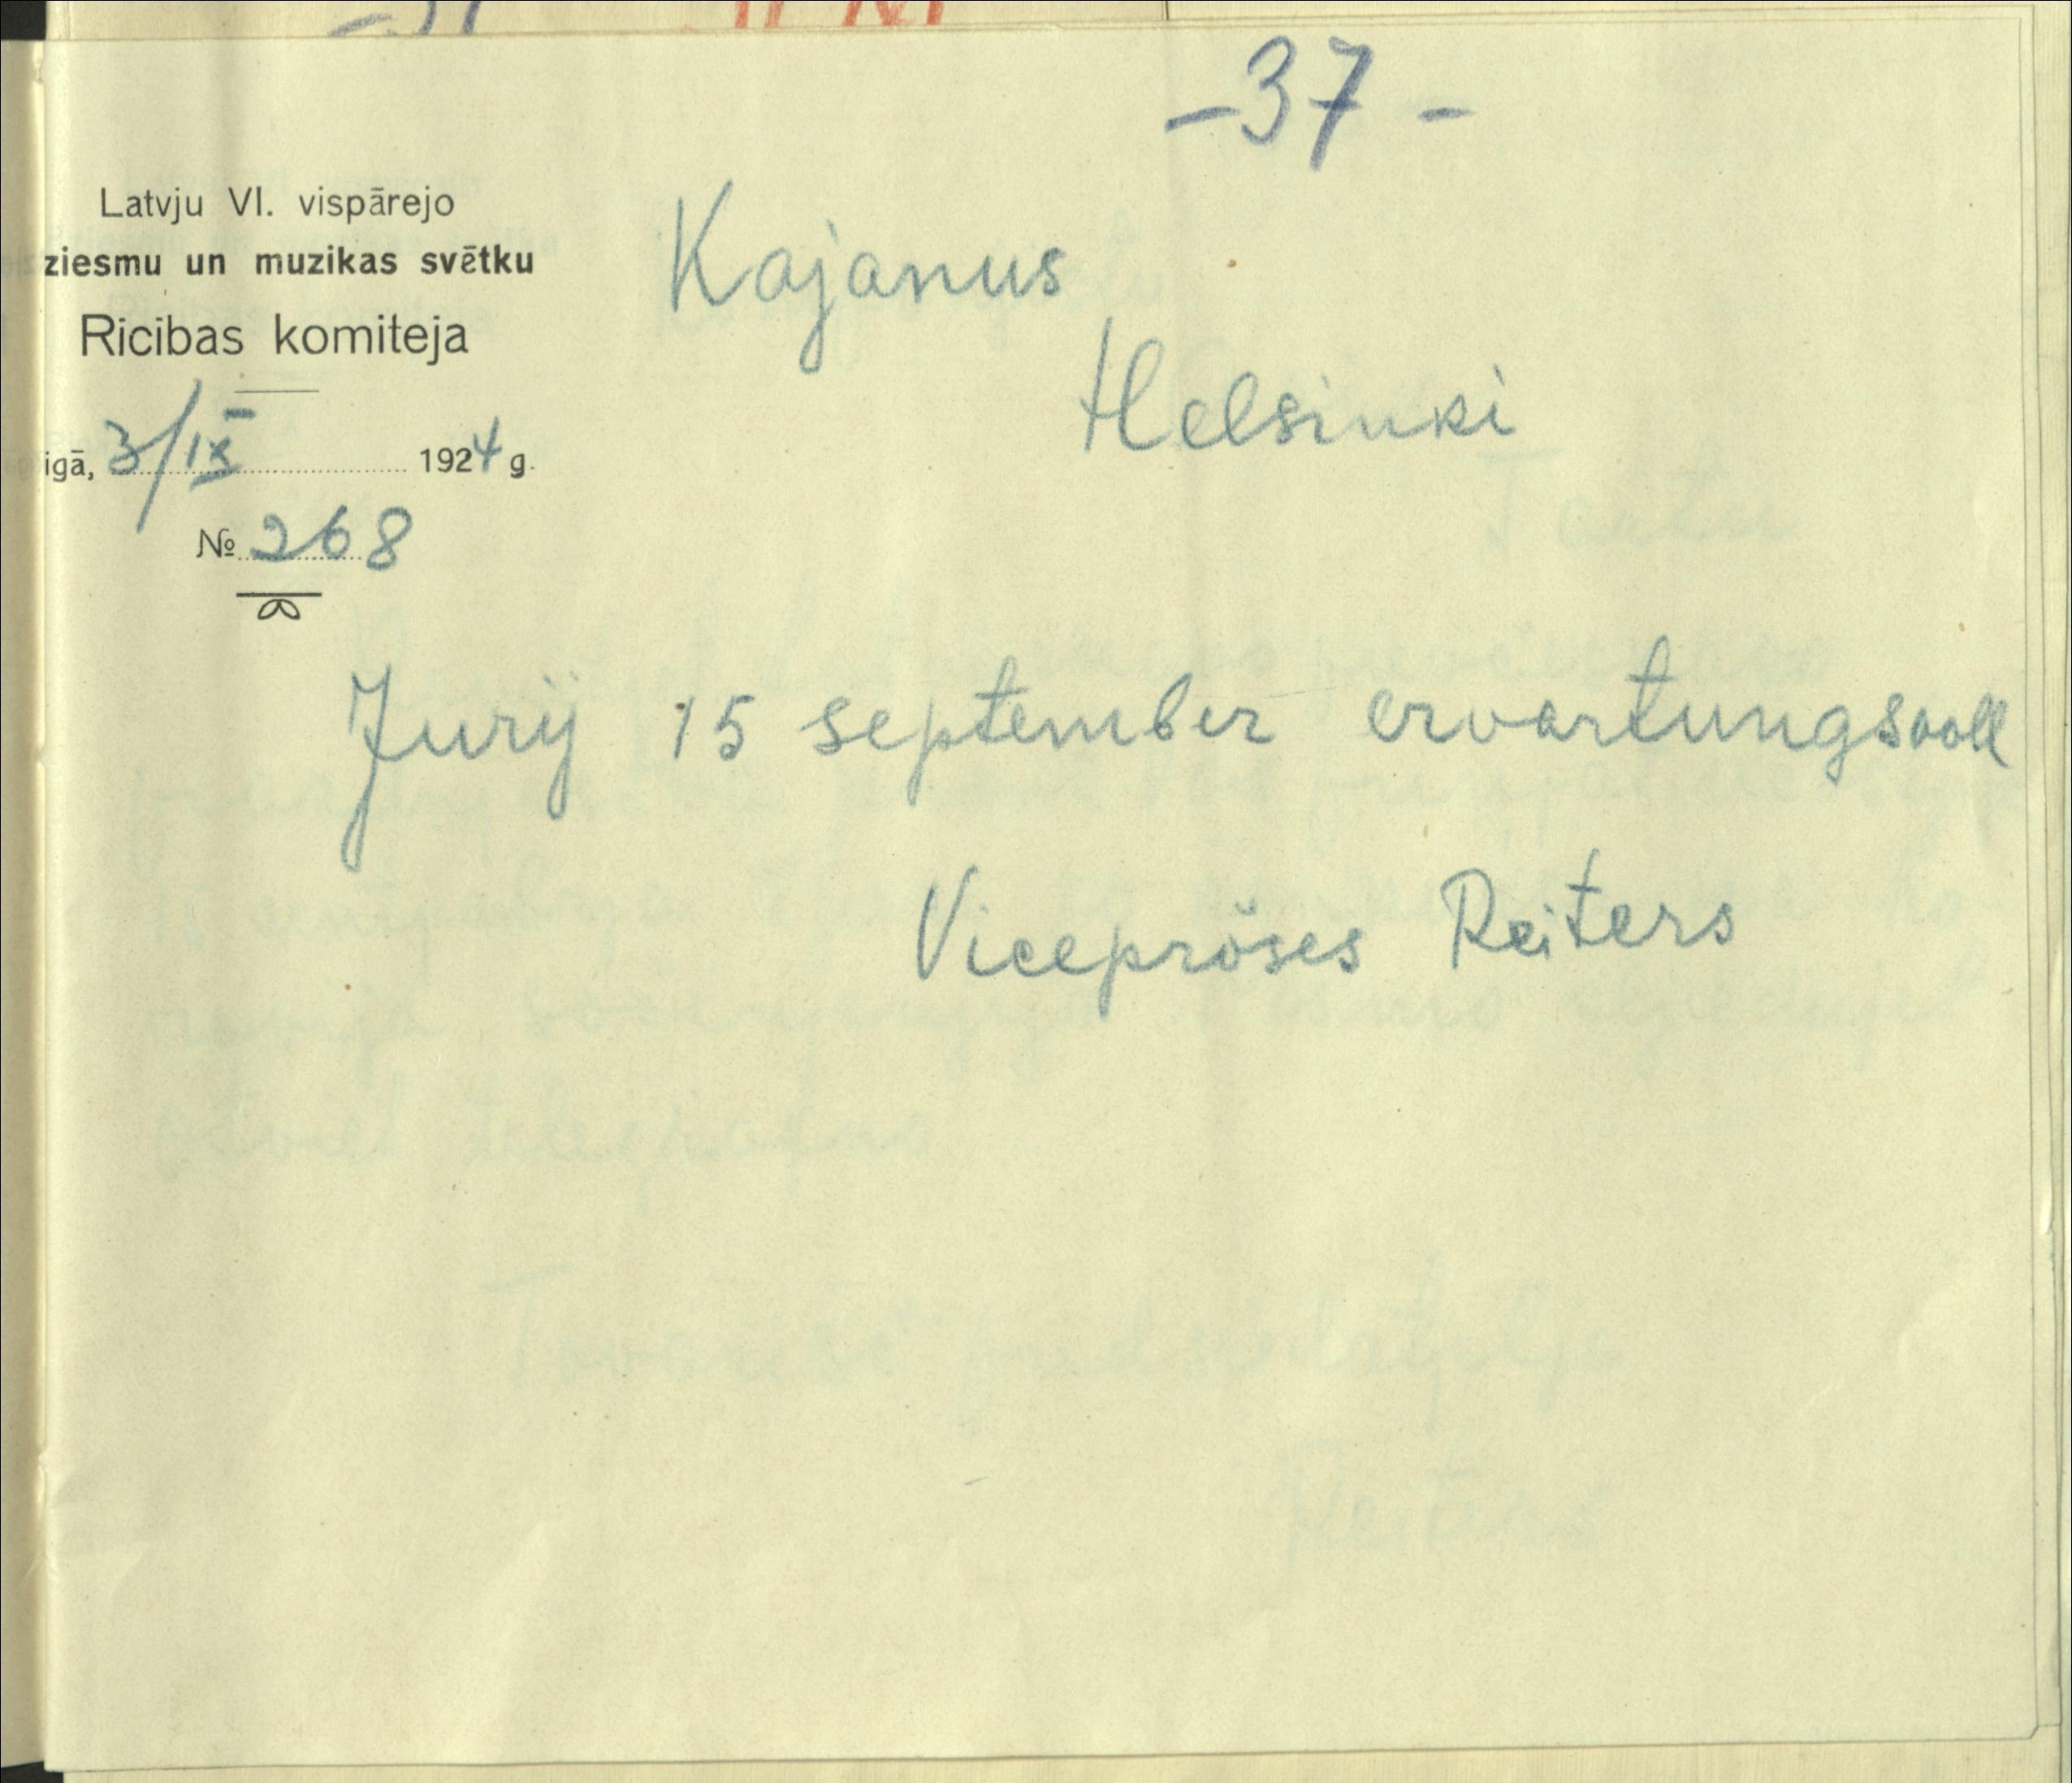 -37-
Latvju VI. vispārejo
ziesmu un muzikas svētku
Rīcības komiteja
igā, 3/IX 1924 g.
№ 268
Kajanus
Helsinki
Jurij 15 september ervartungsvoll
Viceprëses Reiters